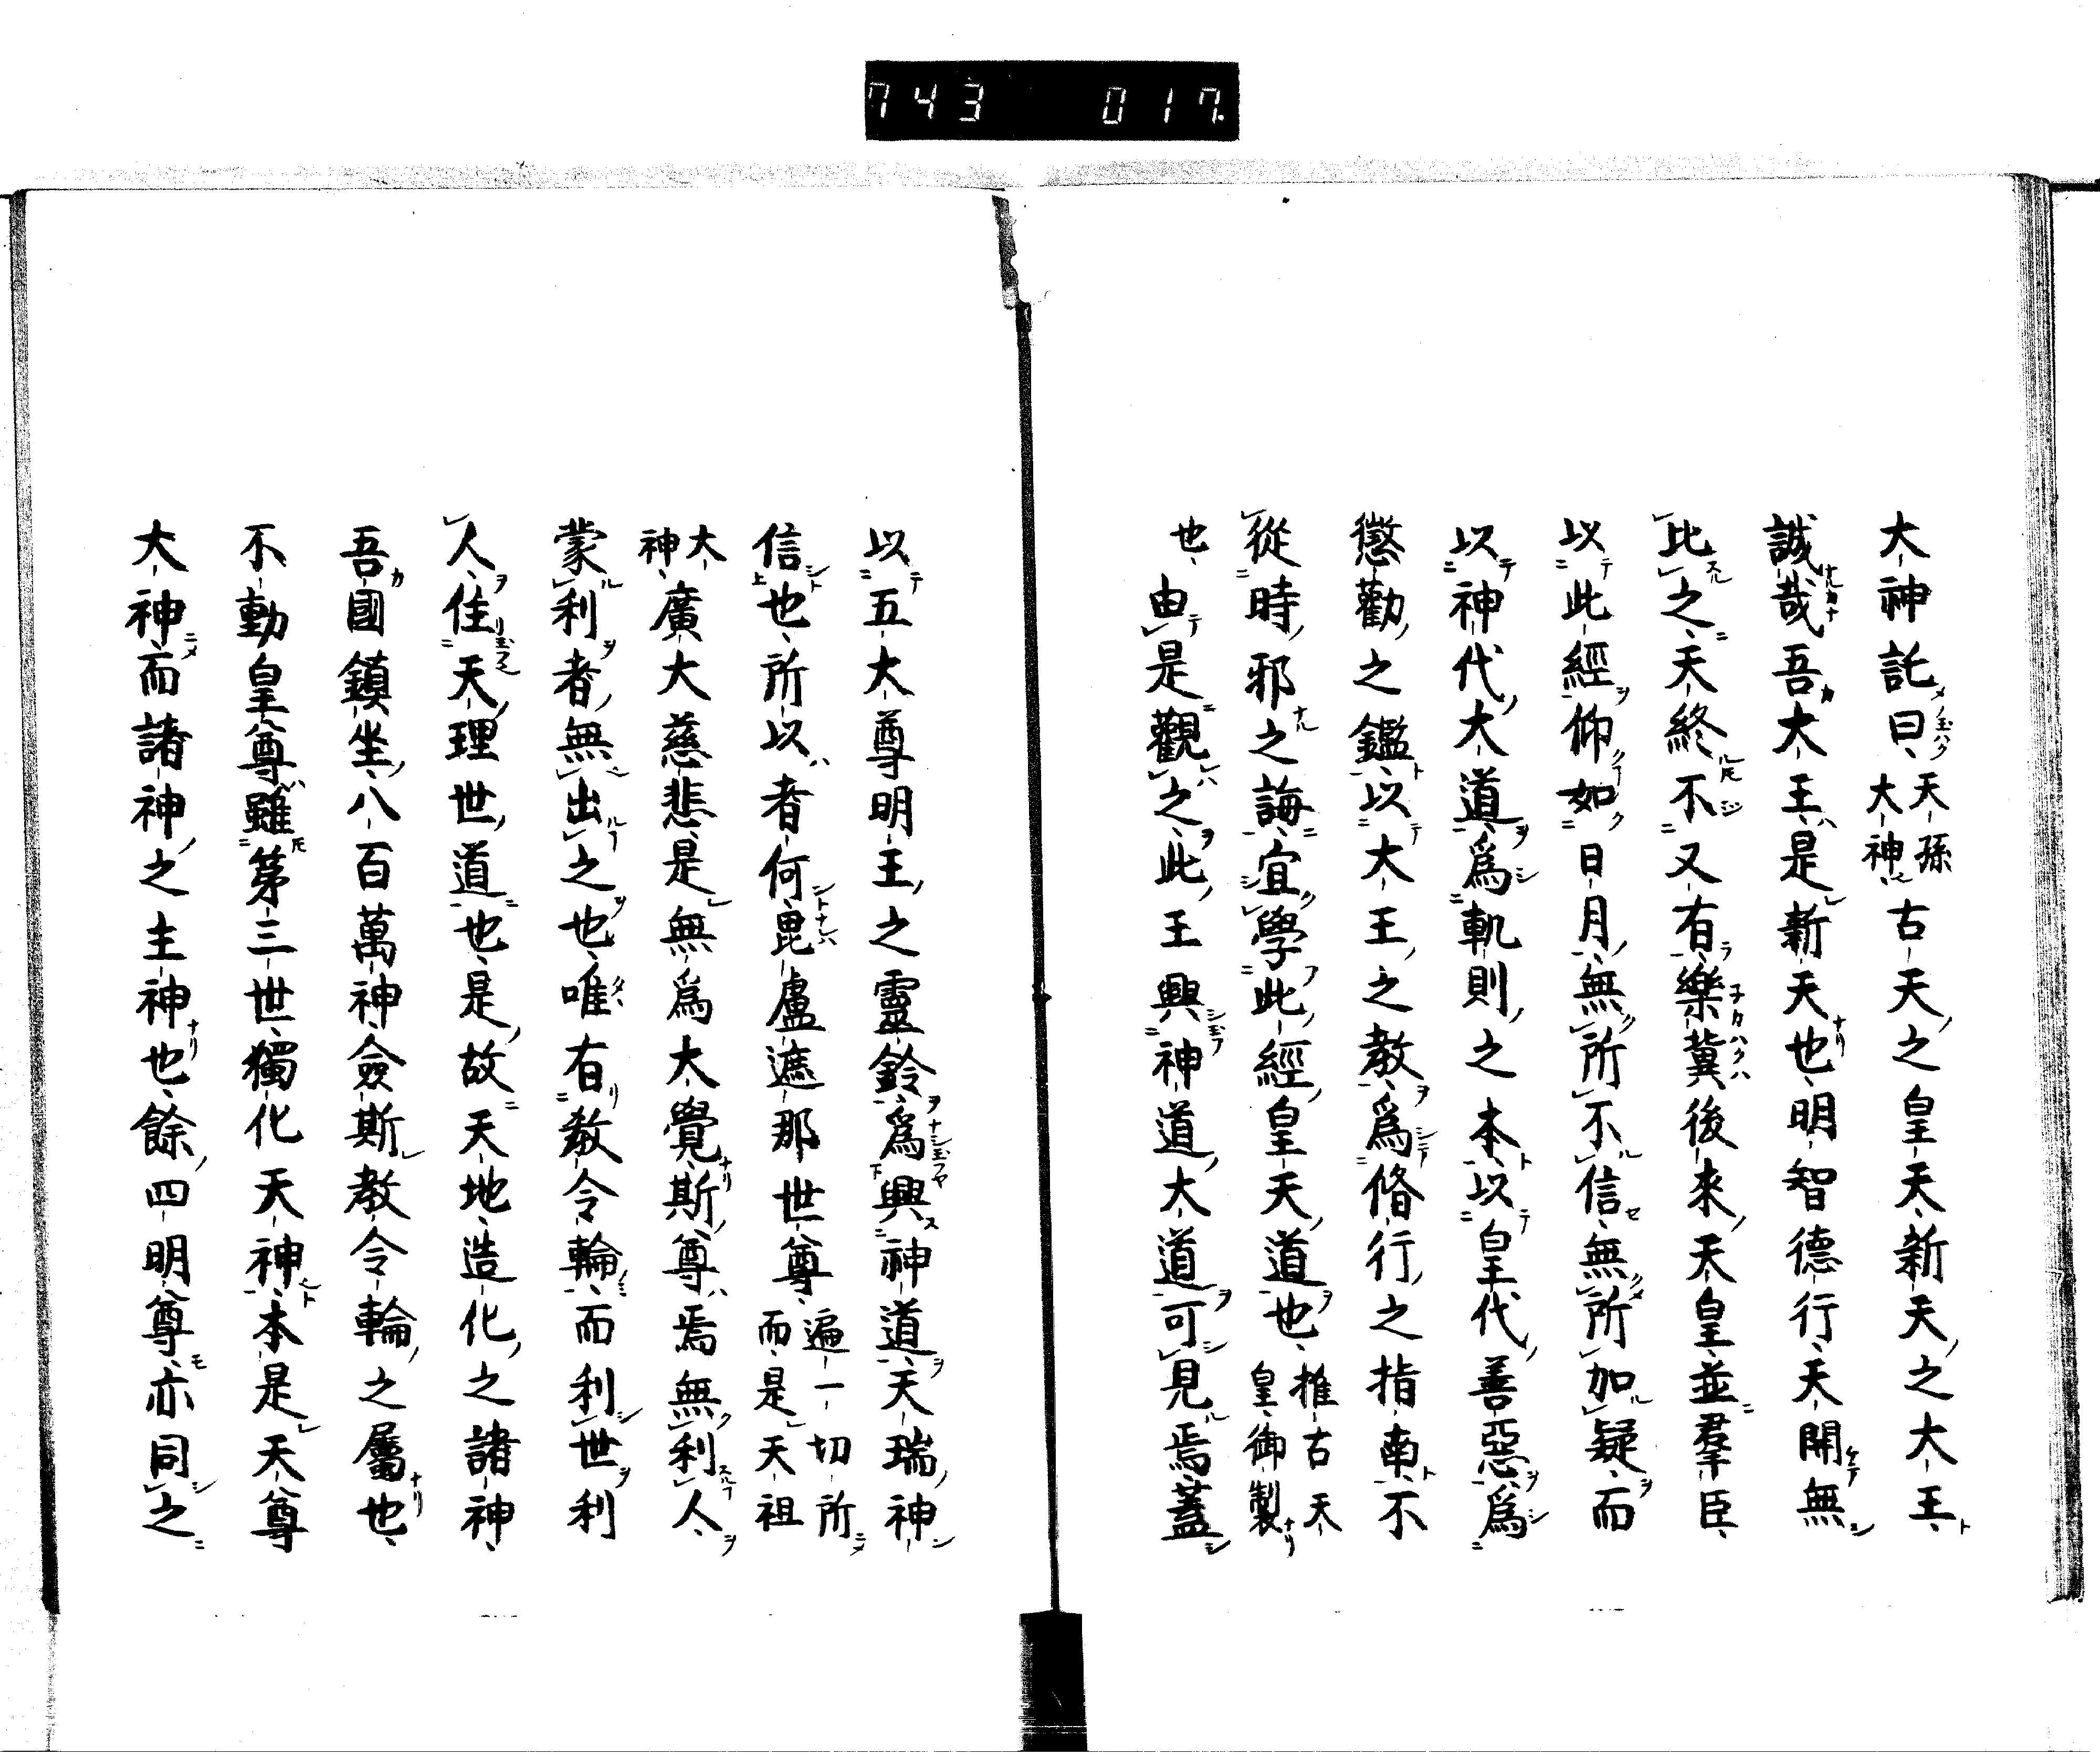 743 017.
大神託曰天孫大神古天之皇天新天之大王
誠哉吾大王是新天也明智德行天開無
比之天終不又有樂冀後來天皇並羣臣
以此經仰如日月無所不信無所加疑而
以神代大道爲軌則之本以皇代善惡爲
懲勸之鑑以大王之教爲脩行之指南不
從時邪之誨宜學此經皇天道也推古天皇御製
也由是觀之此王興神道大道可見焉蓋
以五大尊明王之靈鈴爲興神道天瑞神
信也所以者何毘盧遮那世尊遍一切所而是天祖
大神廣大慈悲是無爲大覺斯尊焉無利人
蒙利者無出之也唯有教令輪而利世利
人住天理世道也是故天地造化之諸神
吾國鎮坐八百萬神僉斯教令輪之屬也
不動皇尊雖第三世獨化天神本是天尊
大神而諸神之主神也餘四明尊亦同之